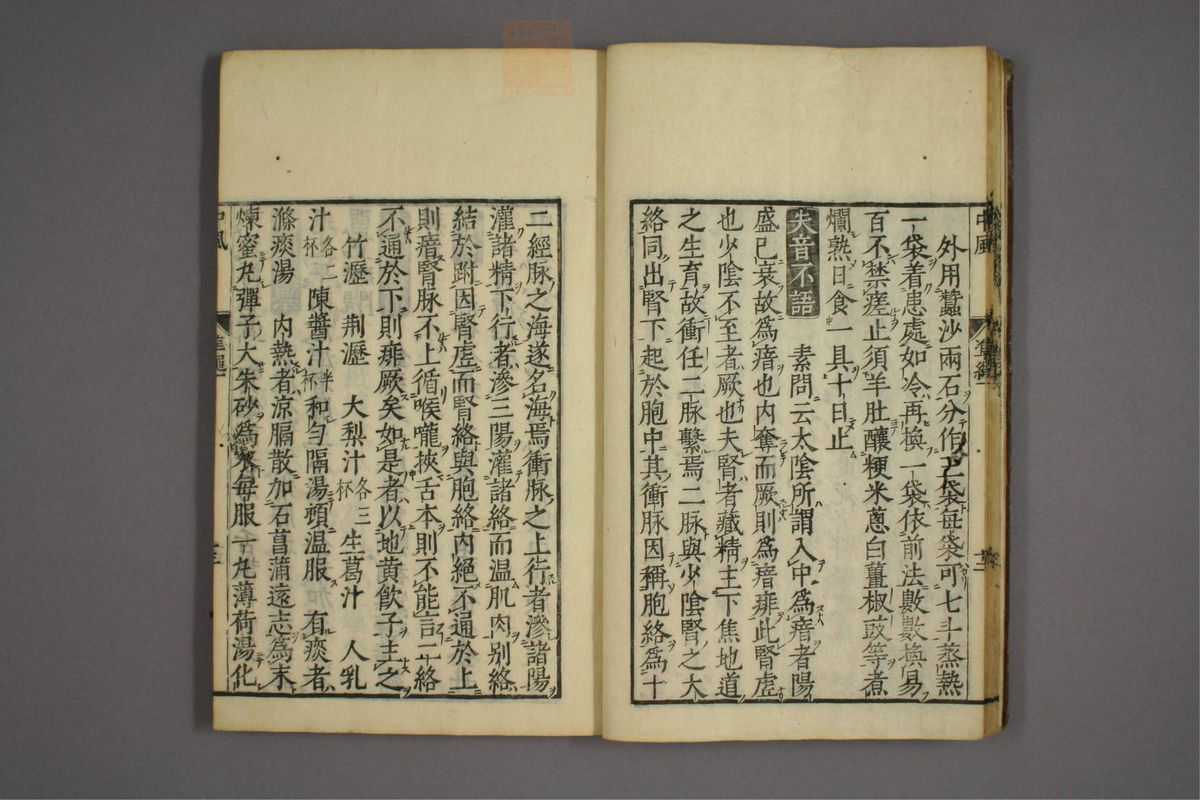 外用蠶沙兩石分作三袋每袋可七斗蒸熱
一袋着患處如冷再換一袋依前法數數換易
百不禁瘥止須羊肚釀粳米蔥白薑椒豉等煮
爛熟日食一具十日止
失音不語 素問云太陰所謂入中爲瘖者陽
盛已衰故爲瘖也內奪而厥則爲瘖痱此腎虛
也少陰不至者厥也夫腎者藏精主下焦地道
之生育故衝任二脉繫焉二脉與少陰腎之大
絡同出腎下起於胞中其衝脉因稱胞絡爲十
二經脉之海遂名海焉衝脉之上行者滲諸陽
灌諸精下行者滲三陽灌諸絡而温肌肉别絡
結於跗因腎虛而腎絡與胞絡内絕不通於上
則瘖腎脉不上循喉嚨挾舌本則不能言二絡
不通於下則痱厥矣如是者以地黄飲子主之
竹瀝 荆瀝 大梨汁各三杯 生葛汁 人乳
汁各二杯 陳醬汁半杯 和勻隔湯頓温服 有痰者
滌痰湯 内熱者涼膈散加石菖蒲遠志爲末
煉蜜丸彈子大朱砂爲衣每服一丸薄荷湯化
中風